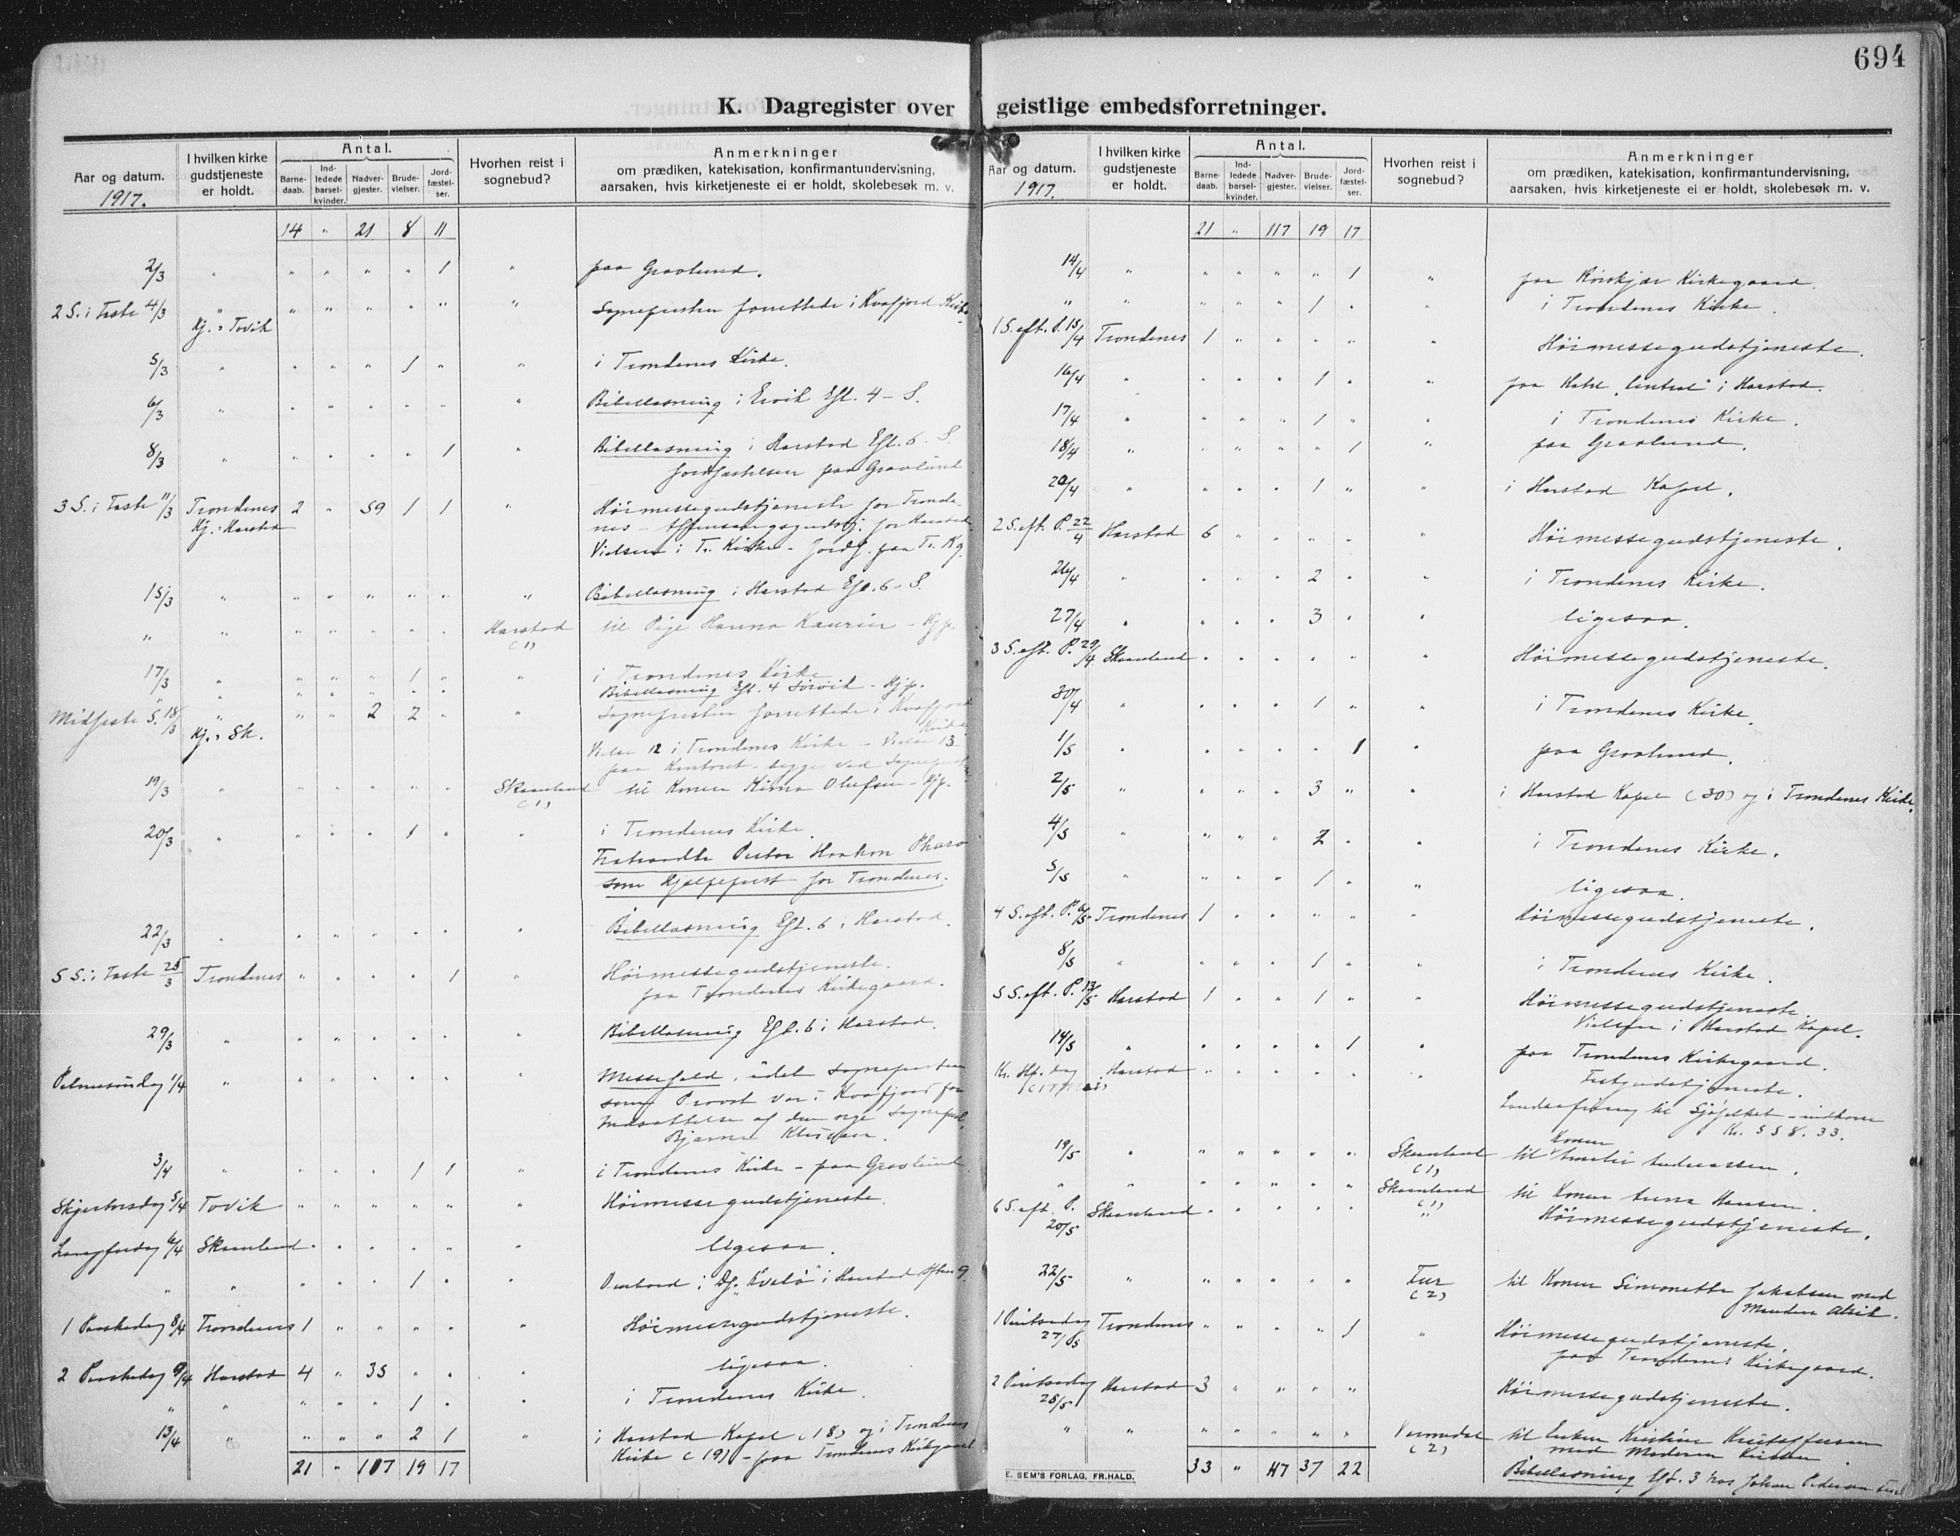 694
K. Dagregister over geistlige embedsforretninger.
Aar og datum. 1917.
I hvilken kirke gudstjeneste er holdt.
Antal.
Barnedaab.
Indledede barselkvinder.
Nadvergjester.
Brudevielser.
Jordfæstelser.
Hvorhen reist i sognebud?
Anmerkninger
om prædiken, katekisation, konfirmantundervisning,
aarsaken, hvis kirketjeneste ei er holdt, skolebesøk m. v.
14 " 21 8 11
2/3 " " " " " 1 " paa Gravlund.
2 S. i Faste 4/3 " " " " " " " Sognepresten forrettede i Kvæfjord Kirke.
Hj. : Tovik
5/3 " " " " 1 " " i Trondenes Kirke.
6/3 " " " " " " " Bibellæsning i Ervik Efl. 4 - S.
8/3 " " " " " 1 " Bibellæsning i Harstad Efl. 6 - S.
Jordfæstelsen paa Gravlund
3 S. i Faste 11/3 Trondenes 2 " 59 1 1 " Høimessegudstjeneste for Tronde-
Hj. : Harstad nes - Aftensangsgudstj. for Harstad.
Vielsen i Tr. Kirke - Jordf. paa Tr. Kg.
15/3 " " " " " " " Bibellæsning i Harstad Efl. 6 - S.
" " " " " " " Harstad til Pige Hanna Kaurin - Hjp.
(1)
17/3 " " " " 1 " " i Trondenes Kirke
" " " " " " " Bibellæsning Efl. 4 Sørvik - Hjp.
Midfaste S. 18/3 " " " 2 2 " " Sognepresten forrettede i Kvæfjord
Hj. : Sk. Kirke
Vielse 12 i Trondenes Kirke - Vielse 13
paa Kontoret - begge ved Sognepr.
19/3 " " " " " " Skaanland til Konen Kirna Olufsen - Hjp.
(1)
20/3 " " " " 1 " " i Trondenes Kirke.
Fratraadte Pastor Haakon
som Hjælpeprest for Trondenes.
22/3 " " " " " " " Bibellæsning Efl. 6 i Harstad.
5 S. i Faste 25/3 Trondenes " " " " 1 " Høimessegudstjeneste.
paa Trondenes Kirkegaard.
29/3 " " " " " " " Bibellæsning Efl. 6 i Harstad.
Palmesøndag 1/4 " " " " " " " Messefald, idet Sognepresten
som Provst var i Kvæfjord for
Indsættelse af den nye Sognepr.
Bjarne
3/4 " " " " 1 1 " i Trondenes Kirke - paa Gravlund.
Skjærtorsdag 5/4 Tovik " " " " " " Høimessegudstjeneste.
Langfredag 6/4 Skaanland " " " " " " ligesaa.
" " " " " 1 " " Ombord i Ds. "Kvalø" i Harstad Aften 9
1 Paaskedag 8/4 Trondenes 1 " " " " " Høimessegudstjeneste.
2 Paaskedag 9/4 Harstad 4 " 35 " " " ligesaa.
" " " " " 1 " " i Trondenes Kirke.
13/4 " " " " 2 1 " i Harstad Kapel (18) og i Trondenes
Kirke (19) - paa Trondenes Kirkegaard
21 " 117 19 17
Aar og datum. 1917.
I hvilken kirke gudstjeneste er holdt.
Antal.
Barnedaab.
Indledede barselkvinder.
Nadvergjester.
Brudevielser.
Jordfæstelser.
Hvorhen reist i sognebud?
Anmerkninger
om prædiken, katekisation, konfirmantundervisning,
aarsaken, hvis kirketjeneste ei er holdt, skolebesøk m. v.
21 " 117 19 17
14/4 " " " " " 1 " paa Kirkegaard.
" " " " " 1 " i Trondenes Kirke.
1 S. eft. P. 15/4 Trondenes 1 " " " " " Høimessegudstjeneste.
16/4 " " " " 1 " " paa Hotel "Central" i Harstad.
17/4 " " " " 1 " " i Trondenes Kirke.
18/4 " " " " " 1 " paa Gravlund.
20/4 " " " " 1 " " i Harstad Kapel.
2 S. eft. P. 22/4 Harstad 6 " " " " " Høimessegudstjeneste.
26/4 " " " " 2 " " i Trondenes Kirke.
27/4 " " " " 3 " " ligesaa.
3 S. eft. P. 29/4 Skaanland " " " " " " Høimessegudstjeneste.
30/4 " " " " 1 " " i Trondenes Kirke.
1/5 " " " " " 1 " paa Gravlund.
2/5 " " " " 3 " " i Harstad Kapel (30) og i Trondenes Kirke.
4/5 " " " " 2 " " i Trondenes Kirke.
5/5 " " " " 1 " " ligesaa.
4 S. eft. P. 6/5 Trondenes 1 " " " " " Høimessegudstjeneste.
8/5 " " " " 1 " " i Trondenes Kirke.
5 S. eft. P. 13/5 Harstad 1 " " 1 " " Høimessegudstjeneste.
Vielsen i Harstad Kapel.
14/5 " " " " " 1 " paa Trondenes Kirkegaard.
Kr. Hf. dag Harstad " " " " " " Festgudstjeneste.
(17 Mai)
Landsofring til Sjøfolket - indkom
Kr. 558.33.
19/5 " " " " " " Skaanland til Konen Andreassen.
(1)
" " " " " " " Skaanland til Konen Anna Hansen.
(1)
6 S. eft. P. 20/5 Skaanland " " " " " " Høimessegudstjeneste.
22/5 " " " " " " (2) til Konen Simonette Jakobsen med
Manden
1 Pintsedag 27/5 Trondenes " " " " 1 " Høimessegudstjeneste.
paa Trondenes Kirkegaard.
2 Pintsedag 28/5 Harstad 3 " " " " Høimessegudstjeneste.
" " " " " " " (2) til Enken Kristine Kristoffersen
med Moderen
33 " 117 37 22 Bibellæsning Efl. 3 hos Johan Pedersen
E. SEM'S FORLAG, FR.HALD.